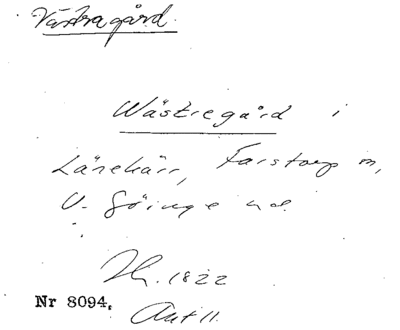 Västragård.
Wästregård i
Länehärr, Farstorp m,
V. Göinge hd.
Jb. 1822
Nr 8094. Art 11.